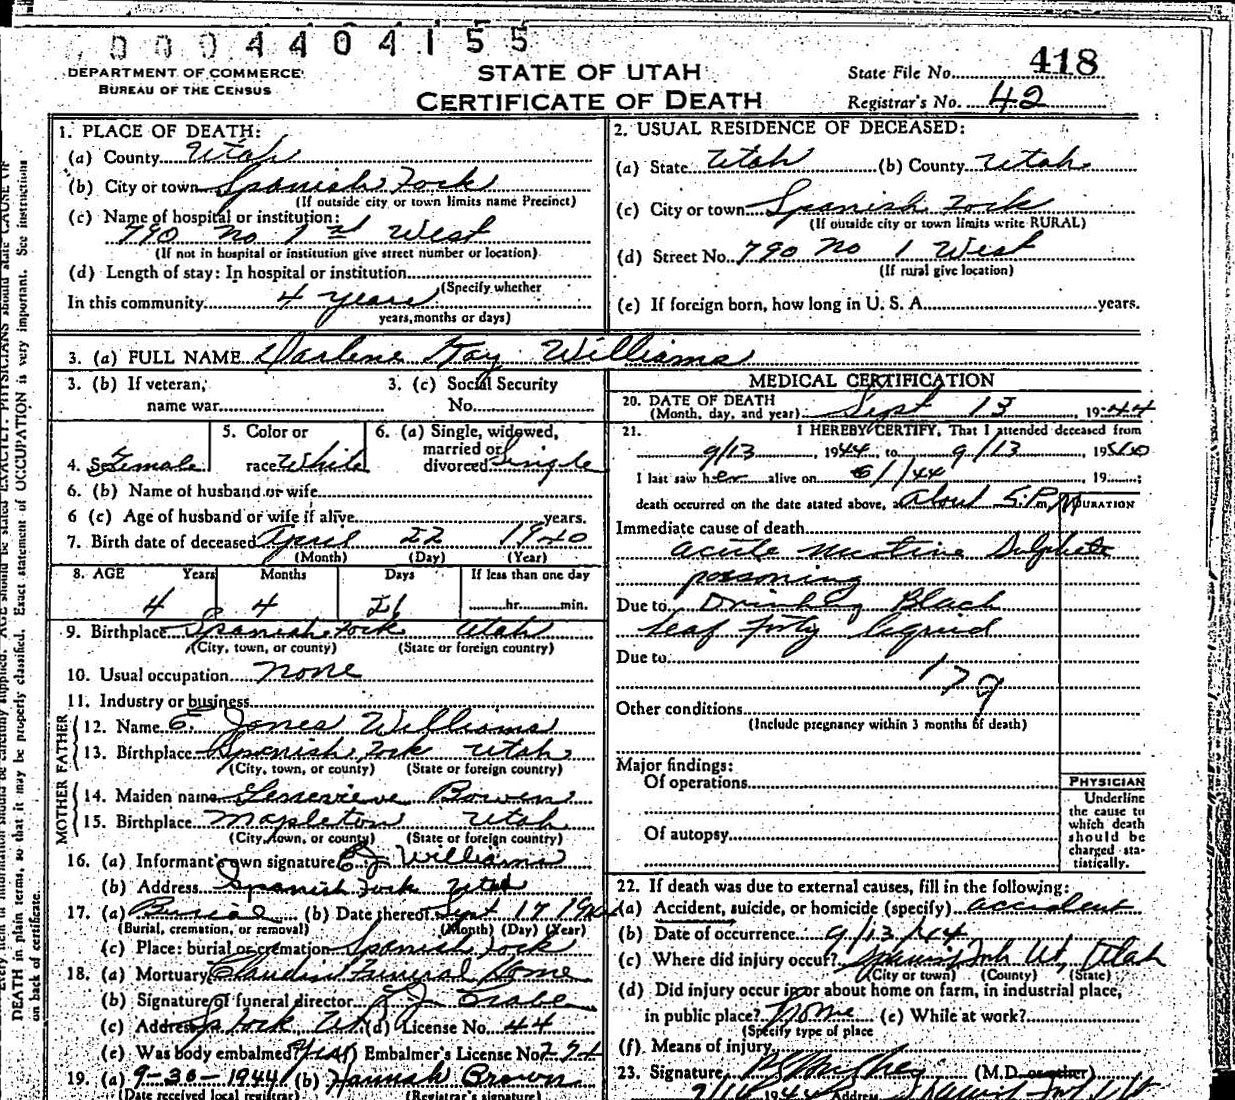 0004404155
DEPARTMENT OF COMMERCE
BUREAU OF THE CENSUS
STATE OF UTAH
CERTIFICATE OF DEATH
State File No. 418
Registrar's No. 42
1. PLACE OF DEATH:
(a) County Utah
(b) City or town Spanish Fork
(If outside city or town limits name Precinct)
(c) Name of hospital or institution:
790 No 1st West
(If not in hospital or institution give street number or location)
(d) Length of stay: In hospital or institution
(Specify whether
In this community 4 years
years, months or days)
2. USUAL RESIDENCE OF DECEASED:
(a) State Utah (b) County Utah
(c) City or town Spanish Fork
(If outside city or town limits write RURAL)
(d) Street No. 790 No 1 West
(If rural give location)
(e) If foreign born, how long in U. S. A. years.
3. (a) FULL NAME Darlene Kay Williams
3. (b) If veteran,
name war
3. (c) Social Security
No.
4. Sex Female
5. Color or
race White
6. (a) Single, widowed,
married or
divorced Single
6. (b) Name of husband or wife
6 (c) Age of husband or wife if alive years.
7. Birth date of deceased April 22 1940
(Month) (Day) (Year)
8. AGE Years Months Days If less than one day
4 4 21 hr. min.
9. Birthplace Spanish Fork Utah
(City, town, or county) (State or foreign country)
10. Usual occupation none
11. Industry or business
FATHER
12. Name E. Jones Williams
13. Birthplace Spanish Fork Utah
(City, town, or county) (State or foreign country)
MOTHER
14. Maiden name Genevieve Bowen
15. Birthplace Mapleton Utah
(City, town, or county) (State or foreign country)
16. (a) Informant's own signature E J Williams
(b) Address Spanish Fork Utah
17. (a) Burial (b) Date thereof Sept 17
(Burial, cremation, or removal) (Month) (Day) (Year)
(c) Place: burial or cremation Spanish Fork
18. (a) Mortuary Claudin Funeral Home
(b) Signature of funeral director
(c) Address Sp Fork Ut (d) License No. 44
(e) Was body embalmed? Yes (f) Embalmer's License No.
19. (a) 9-30-1944 (b) Hannah Brown
(Date received local registrar) (Registrar's signature)
MEDICAL CERTIFICATION
20. DATE OF DEATH
(Month, day, and year) Sept 13, 1944
21. I HEREBY CERTIFY, That I attended deceased from
9/13 1944, to 9/13, 19
I last saw her alive on 6/1/44 19 ;
death occurred on the date stated above, at About 5 P.m. DURATION
Immediate cause of death
acute nicotine Sulphate
poisoning
Due to Drinking Black
leaf forty liquid
Due to
179
Other conditions
(Include pregnancy within 3 months of death)
Major findings:
Of operations
Of autopsy
PHYSICIAN
Underline
the cause to
which death
should be
charged sta-
tistically.
22. If death was due to external causes, fill in the following:
(a) Accident, suicide, or homicide (specify) accident
(b) Date of occurrence 9/13/44
(c) Where did injury occur? Spanish Fork Ut, Utah
(City or town) (County) (State)
(d) Did injury occur in or about home on farm, in industrial place,
in public place? Home (e) While at work?
(Specify type of place
(f). Means of injury
23. Signature (M.D. or other)
1944 Address Spanish Fork Ut
DEATH in plain terms, so that it may be properly classified. Exact statement of OCCUPATION is very important. See instructions
on back of certificate.